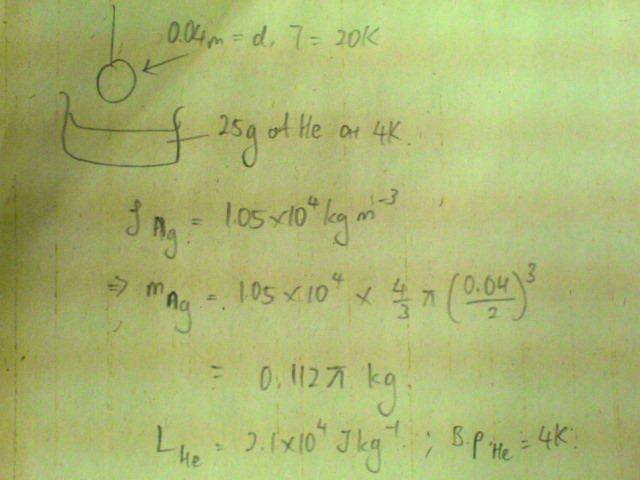 0.04m = d, T = 20K
25g of He at 4K.
ρ Ag = 1.05×10⁴ kg m⁻³
⇒ m Ag = 1.05 × 10⁴ × 4/3 π (0.04/2)³
= 0.112π kg.
L He = 2.1×10⁴ J kg⁻¹ ; B.p. He = 4K.